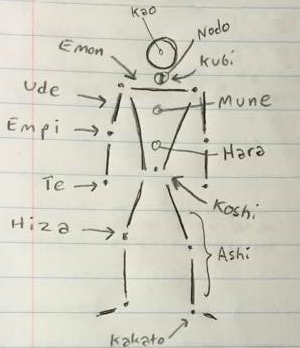 Kao
Nodo
Emon
Kubi
Ude
Mune
Empi
Hara
Te
Koshi
Hiza
Ashi
Kakato